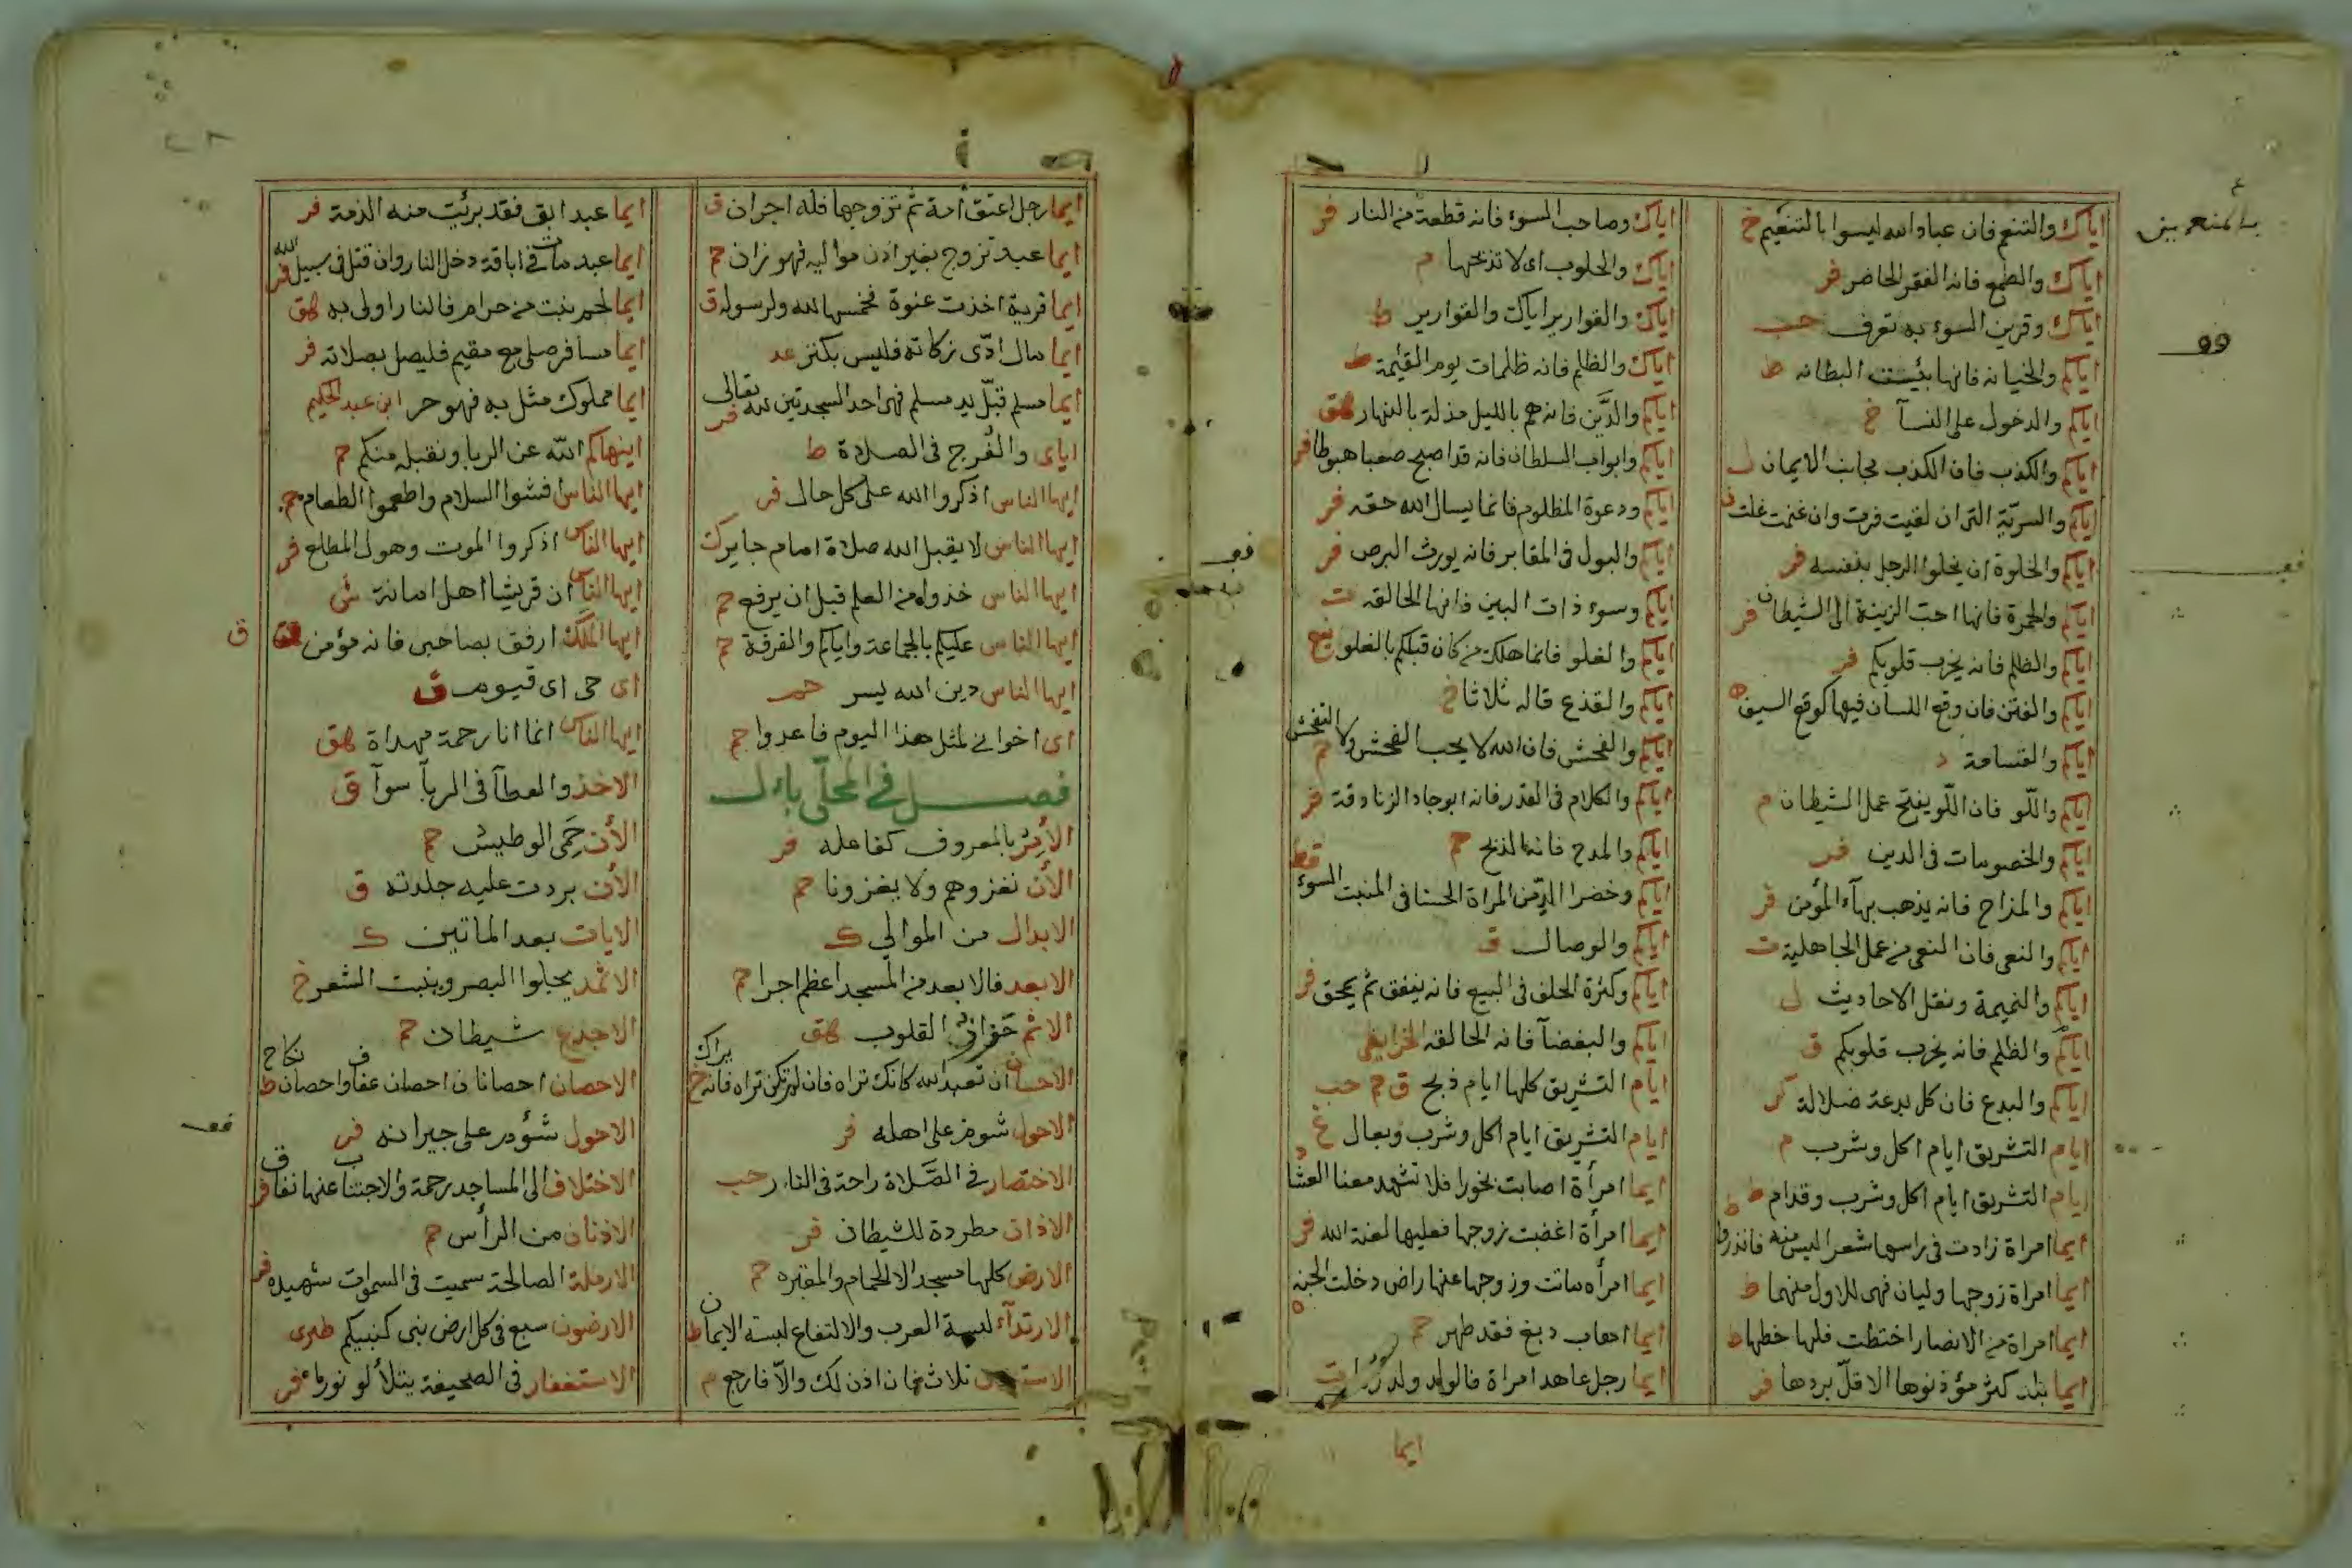 اياك والتنعم فان عباد الله ليسوا بالتنعيم خ
بالمتنعمين
اياك والطمع فانه الفقر الحاضر فر
اياك وقرين السوء به تعرف حب
اياكم والخيانه فانها بئست البطانه ط
اياكم والدخول على النسآ خ
اياكم والكذب فان الكذب مجانب الايمان ل
اياكم والسريّة التى ان لقيت فرت وان غنمت غلت
اياكم والخلوة ان يخلوا الرجل بنفسه فر
اياكم والحمرة فانها احبّ الزينة الى الشيطان فر
اياكم والظلم فانه يخرب قلوبكم فر
اياكم والفتن فان وقع اللسان فيها كوقع السيف ه
اياكم والقسامة د
اياكم واللّو فان اللّو يفتح عمل الشيطان م
اياكم والخصومات فى الدين فر
اياكم والمزاح فانه يذهب بهآء المؤمن فر
اياكم والنعى فان النعى من عمل الجاهلية ت
اياكم والنميمة ونقل الاحاديث ل
اياكم والظلم فانه يخرب قلوبكم ق
اياكم والبدع فان كل بدعة ضلالة كر
ايام التشريق ايام اكل وشرب م
ايام التشريق ايام اكل وشرب وقدام ط
ايما امراة زادت فى راسها شعرا ليس منه
ايما امراة زوجها وليان فهى للاول منهما ط
ايما امراة من الانصار اختطت فلها خطها ط
ايما بلد كثر مؤذنوها الا قلّ بردها فر
اياك وصاحب السوء فانه قطعة من النار فر
اياك والحلوب اى لا تذبحها م
اياك والقوارير اياك والقوارير ط
اياك والظلم فانه ظلمات يوم القيمة ط
اياكم والدَّين فانه هم بالليل مذلة بالنهار هق
اياكم وابواب السلطان فانه قد اصبح صعبا هبوطا فر
اياكم ودعوة المظلوم فانما يسال الله حقه فر
اياكم والبول فى المقابر فانه يورث البرص فر
اياكم وسوء ذات البين فانها الحالقه ت
اياكم والغلو فانما هلك من كان قبلكم بالغلو
اياكم والقذع قاله ثلاثا خ
اياكم والفحش فان الله لا يحب الفحش ولا التفحش م
اياكم والكلام فى القدر فانه ابوجاد الزنادقة فر
اياكم والمدح فانه الذبح حم
اياكم وخضرا الدّمن المراة الحسنا فى المنبت السوء قط
اياكم والوصال ق
اياكم وكثرة الحلف فى البيع فانه ينفق ثم يمحق فر
اياكم والبغضآ فانه الحالقه الخرايطى
ايام التشريق كلها ايام ذبح ق حم حب
ايام التشريق ايام اكل وشرب وبعال
ايما امرأة اصابت بخورا فلا تشهد معنا العشا
ايما امرأة اغضبت زوجها فعليها لعنة الله فر
ايما امرأه ماتت وزوجها عنها راض دخلت الجنه
ايما اهاب دبغ فقد طهر حم
ايما رجل عاهد امراة فالولد ولد زنا ت
ايما
ايما رجل اعتق امة ثم تزوجها فله اجران ق
ايما عبد تزوج بغير اذن مواليه فهو زان حم
ايما قرية اخذت عنوة فخمسها لله ولرسوله ق
ايما مال ادّى زكاته فليس بكنز عد
ايما مسلم قبّل يد مسلم فهى احد السجدتين لله تعالى فر
اياى والفُرج فى الصلاة ط
ايها الناس اذكروا الله على كل حال فر
ايها الناس لا يقبل الله صلاة امام جاير ك
ايها الناس خذوا من العلم قبل ان يرفع حم
ايها الناس عليكم بالجماعة واياكم والفرقة حم
ايها الناس دين الله يسر حم
اى اخوانى لمثل هذا اليوم فاعدوا حم
فصل فى المحلّى بال
الأمر بالمعروف كفاعله فر
الأن نغزوهم ولا يغزونا حم
الابدال من الموالي ك
الابعد فالابعد من المسجد اعظم اجرا حم
الاثم القلوب هق
الاحسان ان تعبد الله كانك تراه فان لم تكن تراه فانه يراك
الاحول شوم على اهله فر
الاختصار فى الصَّلاة راحة فى النار حب
الاذان مطردة للشيطان فر
الارض كلها مسجد الا الحمام والمقبره حم
الارتدآء لبسة العرب والالتفاع لبسة الايمان ط
ثلاث فان اذن لك والاّ فارجع م
ايما عبد ابق فقد برئت منه الذمة فر
ايما عبد مات فى اباقه دخل النار وان قتل فى سبيل الله فر
ايما لحم ينبت من حرام فالنار اولى به هق
ايما مسافر صلى مع مقيم فليصل بصلاته فر
ايما مملوك مثل به فهو حر ابن عبد الحكيم
اينهاكم الله عن الربا ونقبله منكم حم
ايها الناس افشوا السلام واطعموا الطعام حم
ايها الناس اذكروا الموت وهول المطلع فر
ايها الناس ان قريشا اهل امانة ش
ايها الملك ارفق بصاحبى فانه مؤمن ق
اى حى اى قيوم ق
ايها الناس انما انا رحمة مهداة هق
الاخذ والعطآ فى الربآ سوآ ق
الأن حَمى الوطيس حم
الأن بردت عليه جلدته ق
الايات بعد الماتين ك
الاثمد يجلوا البصر وينبت الشعر خ
الاجدع شيطان حم
الاحصان احصانان احصان عفاف واحصان نكاح ط
الاحول شؤم على جيرانه فر
الاختلاف الى المساجد رحمة والاجتناب عنها نفاق فر
الاذنان من الرأس حم
الارملة الصالحة سميت فى السموات شهيده فر
الارضون سبع فى كل ارض نبى كنبيكم طبرى
الاستغفار فى الصحيفة يتلألؤ نورا فر